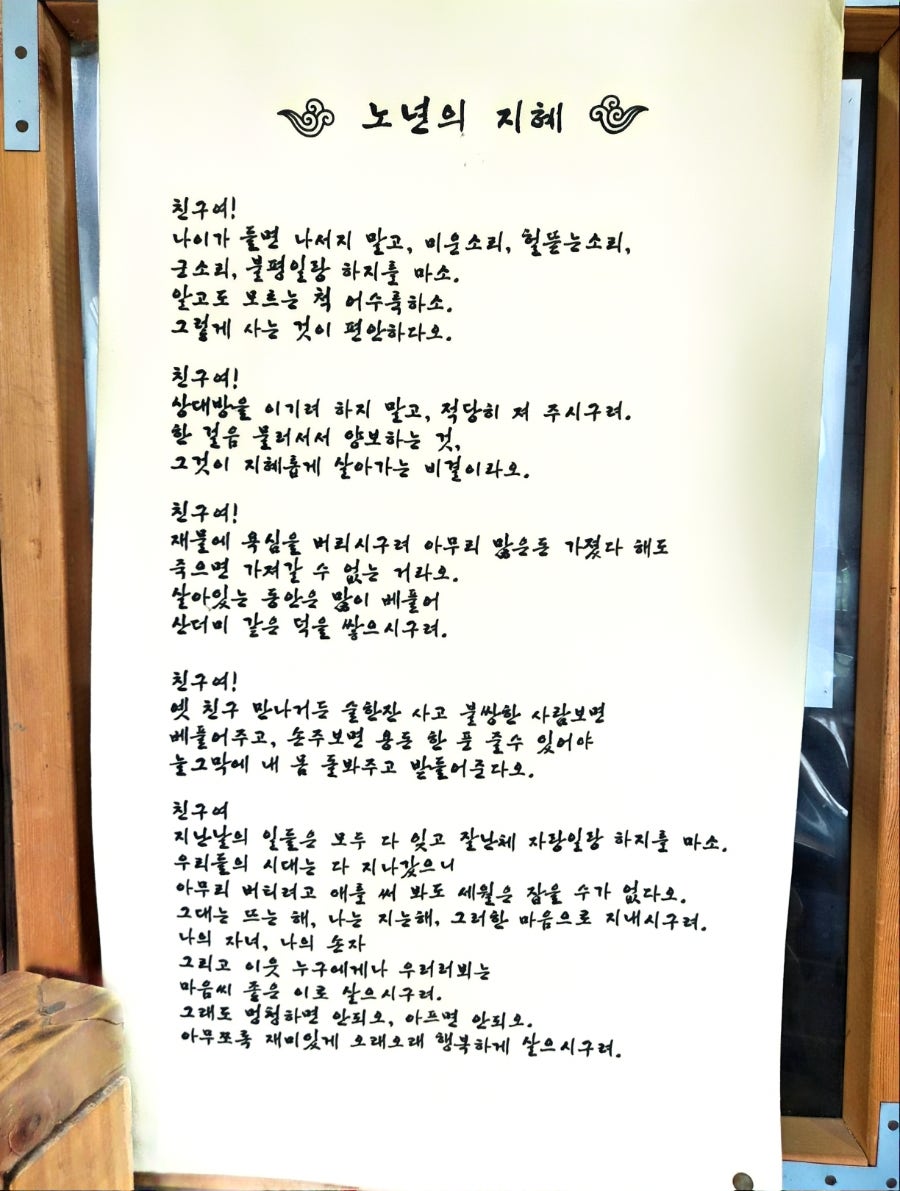 노년의 지혜
친구여!
나이가 들면 나서지 말고, 미운소리, 헐뜯는소리,
군소리, 불평일랑 하지를 마소.
알고도 모르는 척 어수룩하소.
그렇게 사는 것이 편안하다오.
친구여!
상대방을 이기려 하지 말고, 적당히 져 주시구려.
한 걸음 물러서서 양보하는 것,
그것이 지혜롭게 살아가는 비결이라오.
친구여!
재물에 욕심을 버리시구려 아무리 많은돈 가졌다 해도
죽으면 가져갈 수 없는 거라오.
살아있는 동안은 많이 베풀어
산더미 같은 덕을 쌓으시구려.
친구여!
옛 친구 만나거든 술한잔 사고 불쌍한 사람보면
베풀어주고, 손주보면 용돈 한 푼 줄수 있어야
늘그막에 내 몸 돌봐주고 받들어준다오.
친구여
지난날의 일들은 모두 다 잊고 잘난체 자랑일랑 하지를 마소.
우리들의 시대는 다 지나갔으니
아무리 버티려고 애를 써 봐도 세월은 잡을 수가 없다오.
그대는 뜨는 해, 나는 지는해, 그러한 마음으로 지내시구려.
나의 자녀, 나의 손자
그리고 이웃 누구에게나 우러러뵈는
마음씨 좋은 이로 살으시구려.
그래도 멍청하면 안되오, 아프면 안되오.
아무쪼록 재미있게 오래오래 행복하게 살으시구려.